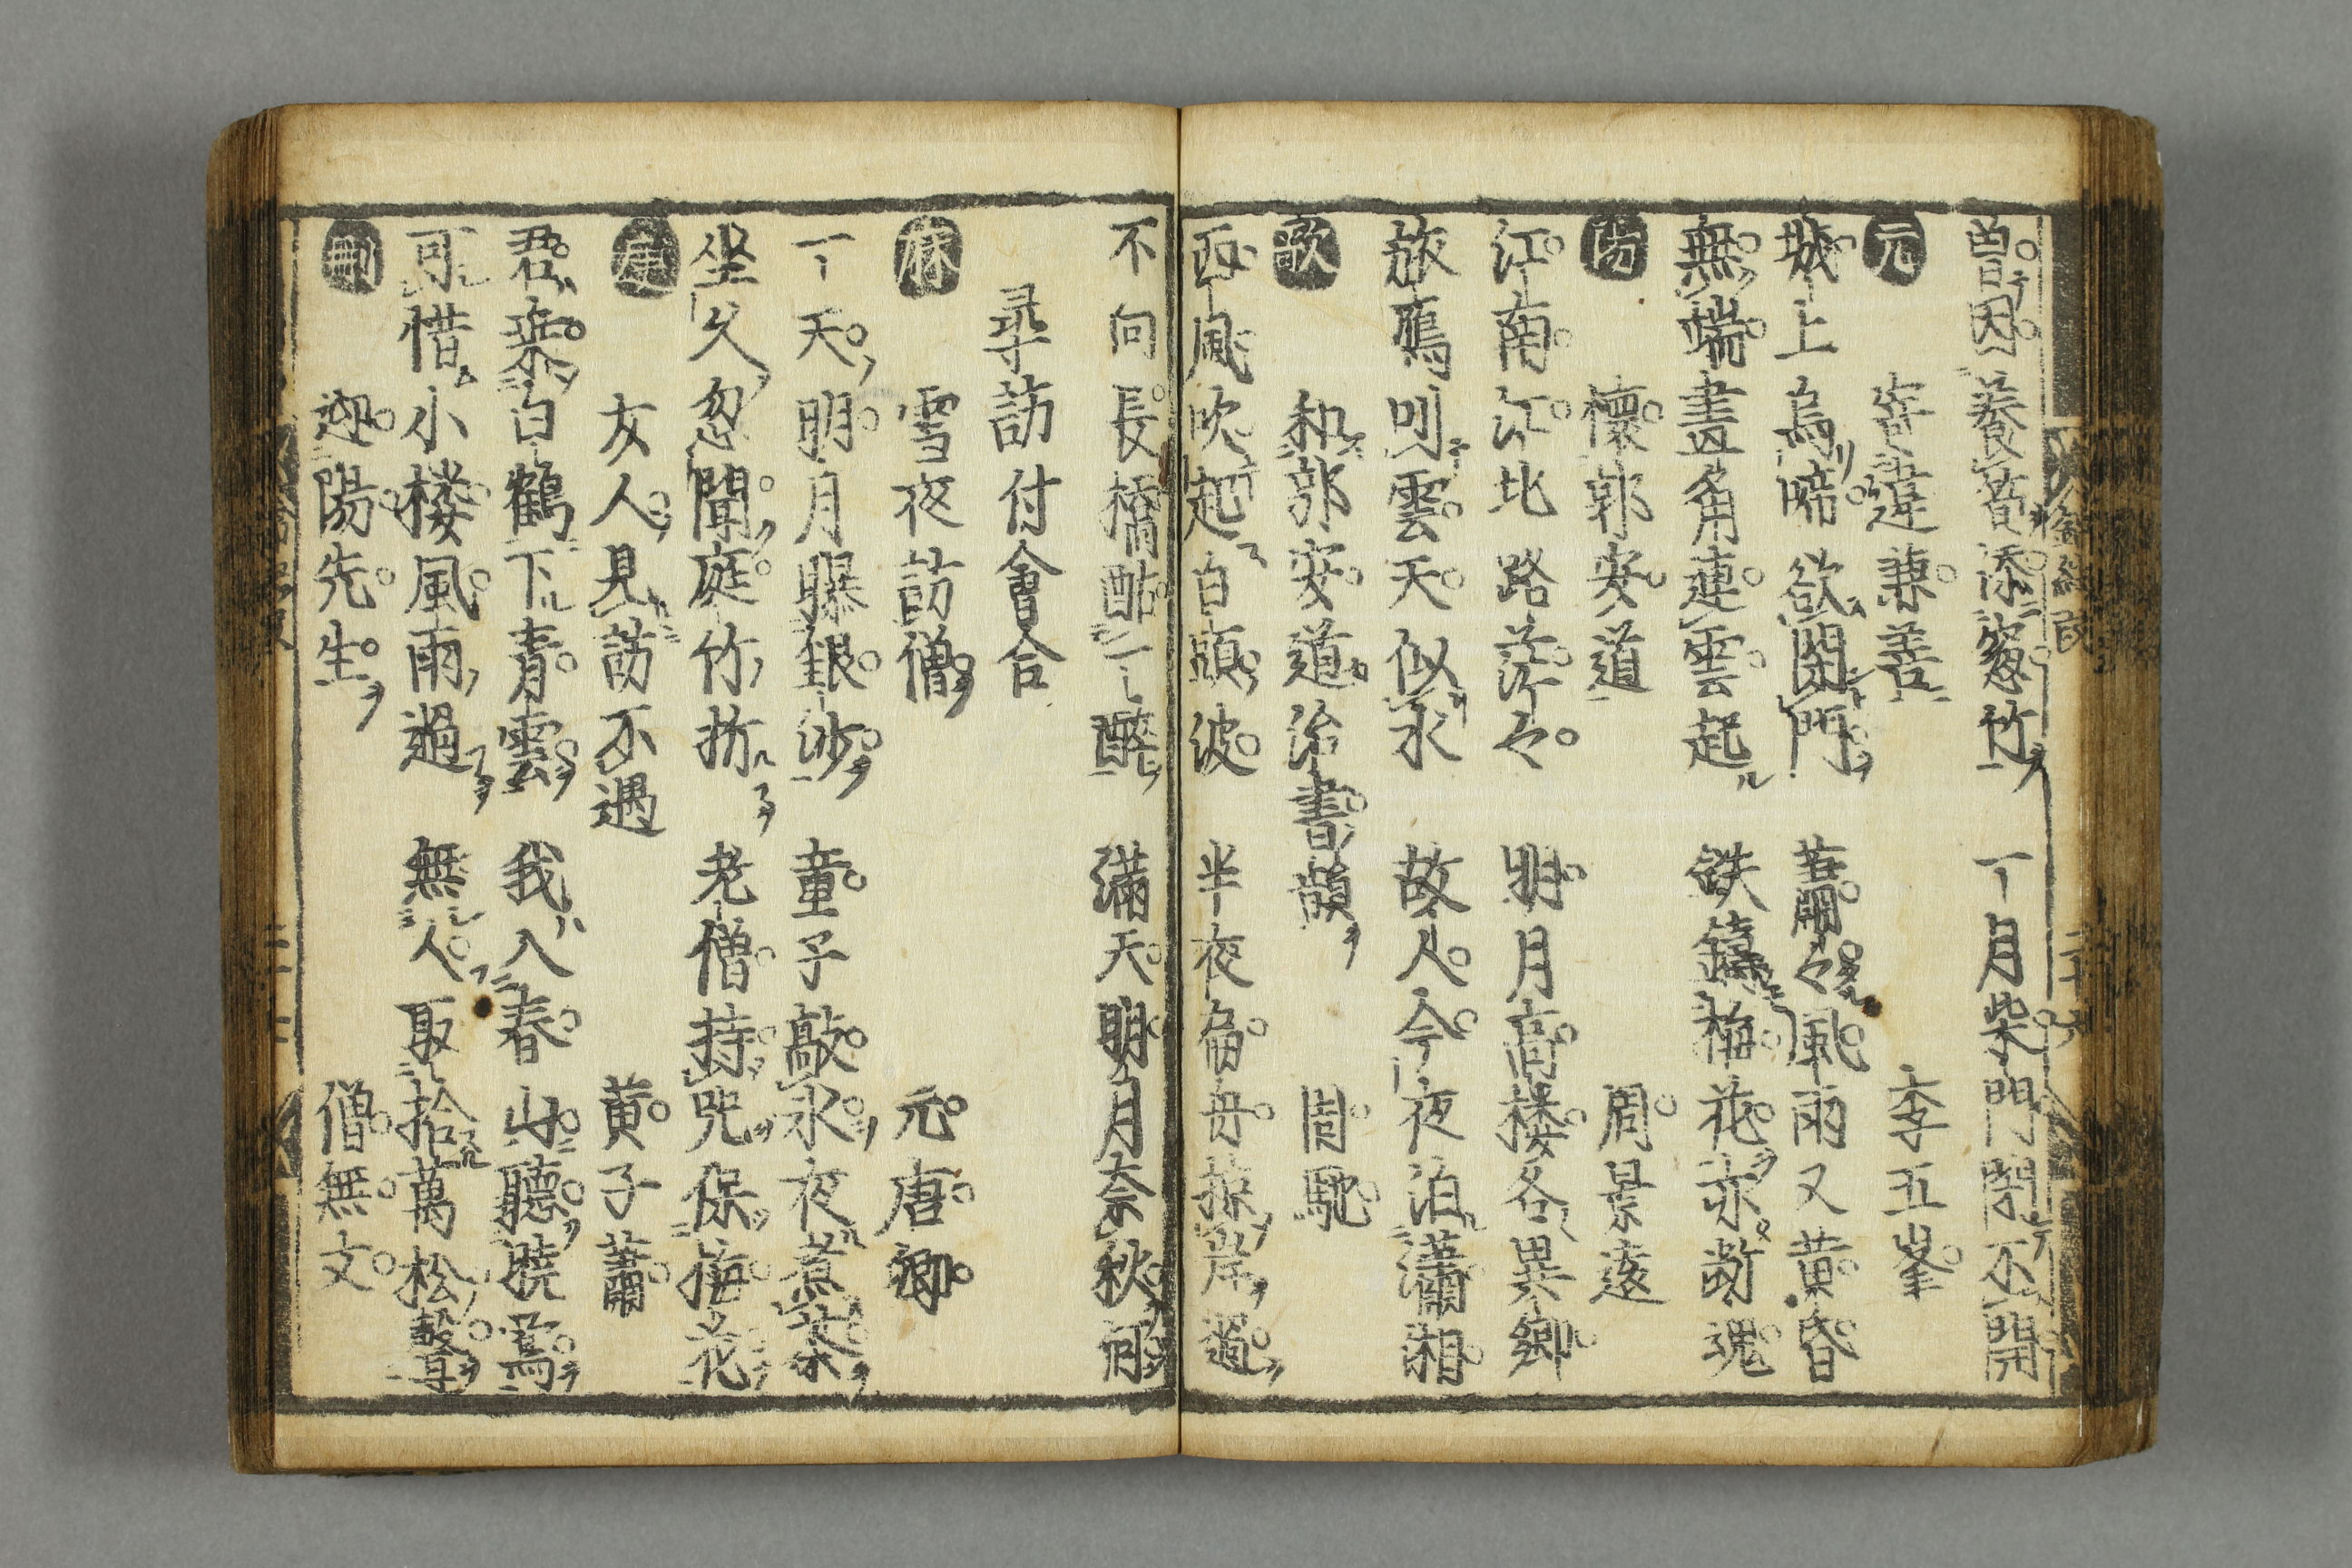 曽因養痾添窓竹　一月柴門閉不開
元　答達兼善　李五峯
城上烏啼欲閉門　蕭々風雨又黄昏
無端畫角連雲起　鉄篴梅花未断魂
陽　懐郭安道　周景遠
江南江北路茫々　明月高楼各異郷
旅鴈叫雲天似水　故人今夜泊瀟湘
歌　和郭安道治書韻　周馳
西風吹起白頭波　半夜扁舟掠岸過
不向長橋酤一醉　満天明月奈秋何
尋訪付會合
庥　雪夜訪僧　元唐卿
一天明月曝銀沙　童子敲氷夜煮茶
坐久忽聞庭竹折　老僧持咒保梅花
庚　女人見訪不遇　黄子蕭
君乗白鶴下青雲　我入春山聽曉鶯
可惜小楼風雨過　無人取拾萬松聲
迎陽先生　僧無文